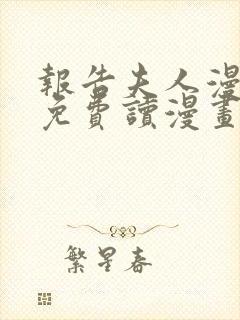 報告夫人漫
免費讀漫畫
繁星春